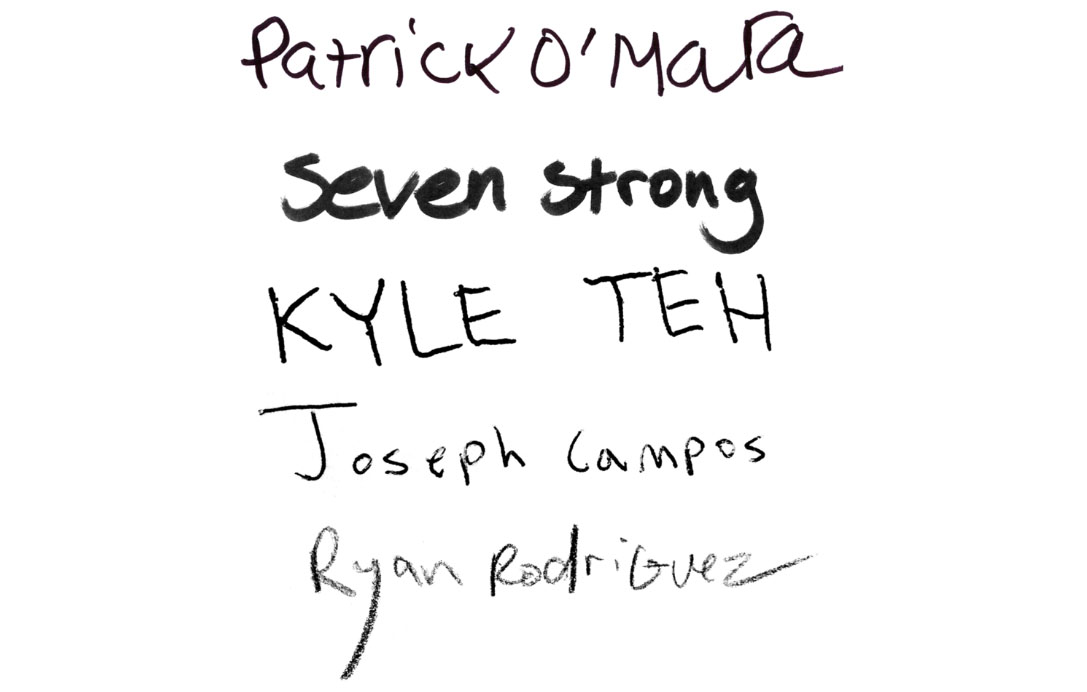 Patrick O'Mara
Seven Strong
KYLE TEH
Joseph Campos
Ryan Rodriguez